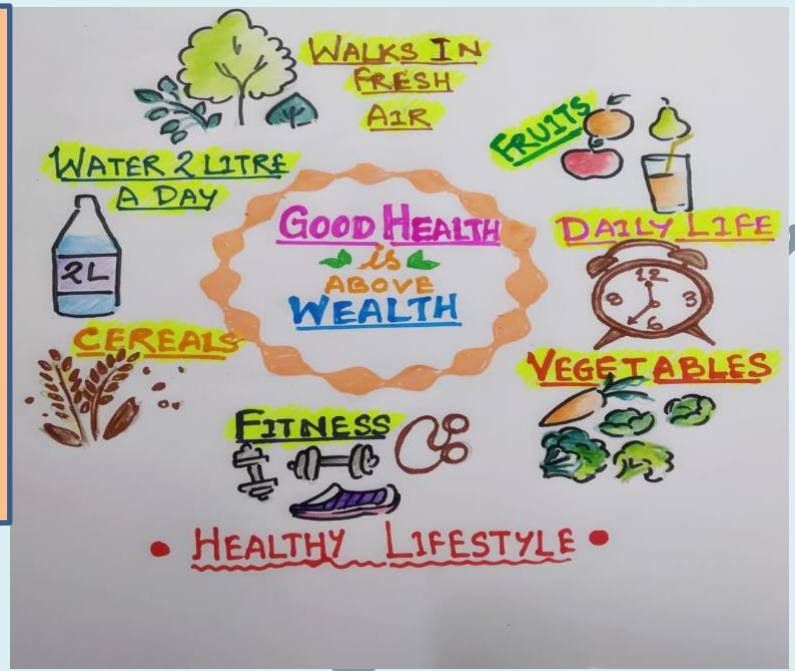 WALKS IN
FRESH
AIR
FRUITS
WATER 2 LITRE
A DAY
2L
GOOD HEALTH
is
ABOVE
WEALTH
DAILY LIFE
12
9
3
6
CEREALS
VEGETABLES
FITNESS
• HEALTHY LIFESTYLE •